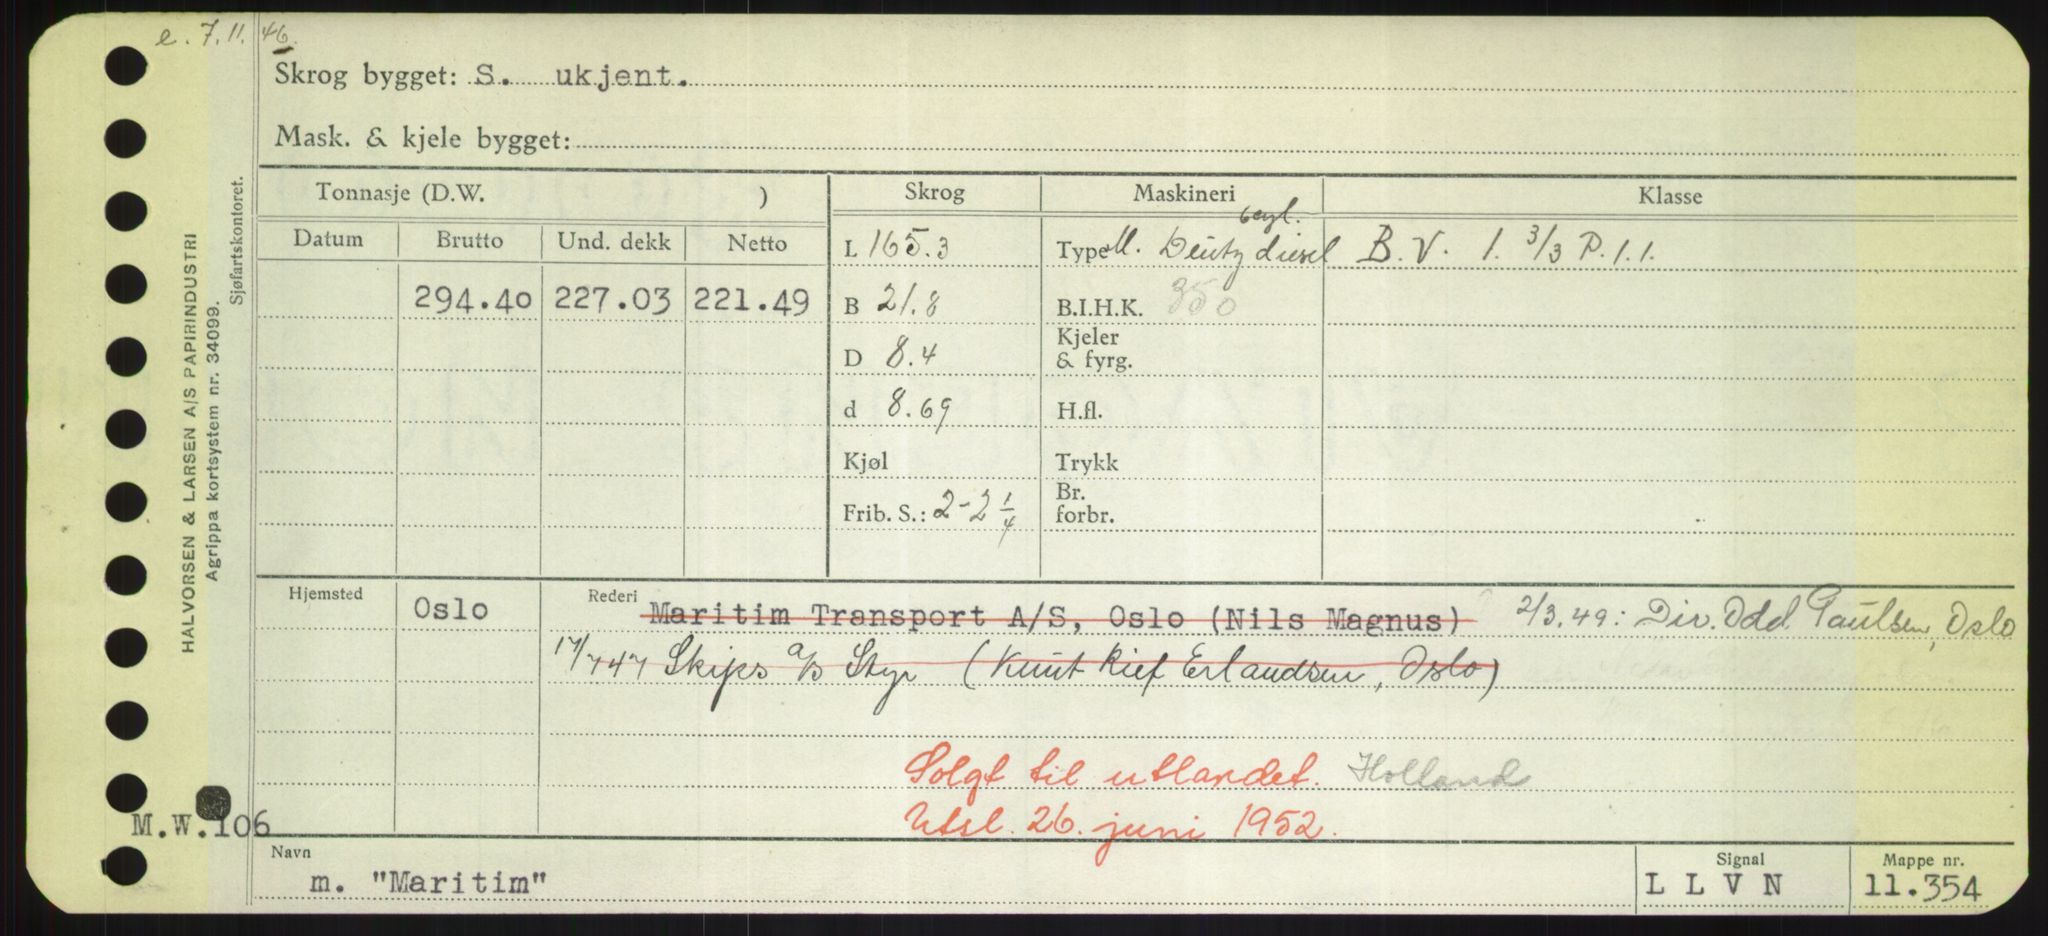 e. 7.11.46.
Skrog bygget: S. ukjent.
Mask. & kjele bygget:
Tonnasje (D.W. )
Skrog
Maskineri
Klasse
Datum
Brutto
Und. dekk
Netto
294.40
227.03
221.49
L 165.3
B 21.8
D 8.4
d 8.69
Kjøl
Frib. S.: 2-2 1/4
6cyl.
Type M. Deutz diesel
B.I.H.K. 350
Kjeler
& fyrg.
H.fl.
Trykk
Br.
forbr.
B.V. 1. 3/3 P.1.1.
Hjemsted
Oslo
Rederi
Maritim Transport A/S, Oslo (Nils Magnus)
2/3.49: Div. Odd Paulsen, Oslo
17/7 47 Skips a/s Styr (Knut Rief Erlandsen, Oslo)
Solgt til utlandet. Holland
Utsl. 26. juni 1952.
M.W.106
Navn
m. "Maritim"
Signal
L L V N
Mappe nr.
11.354
HALVORSEN & LARSEN A/S PAPIRINDUSTRI
Agrippa kortsystem nr. 34099.
Sjøfartskontoret.